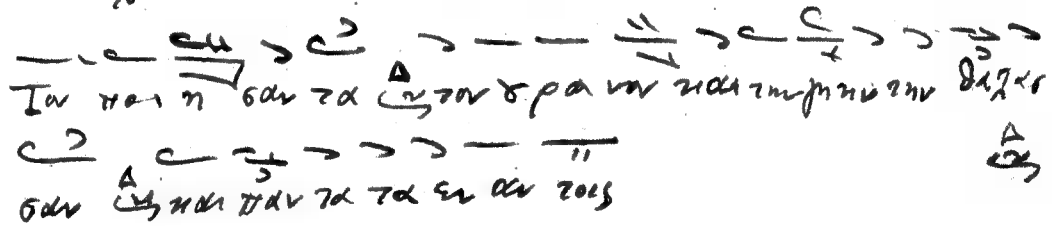 Τον ποι η σαν τα Δ τον ȣ ρα νον και την γην κυ την θα λασ
σαν Δ και παν τα τα εν αυ τοις Δ